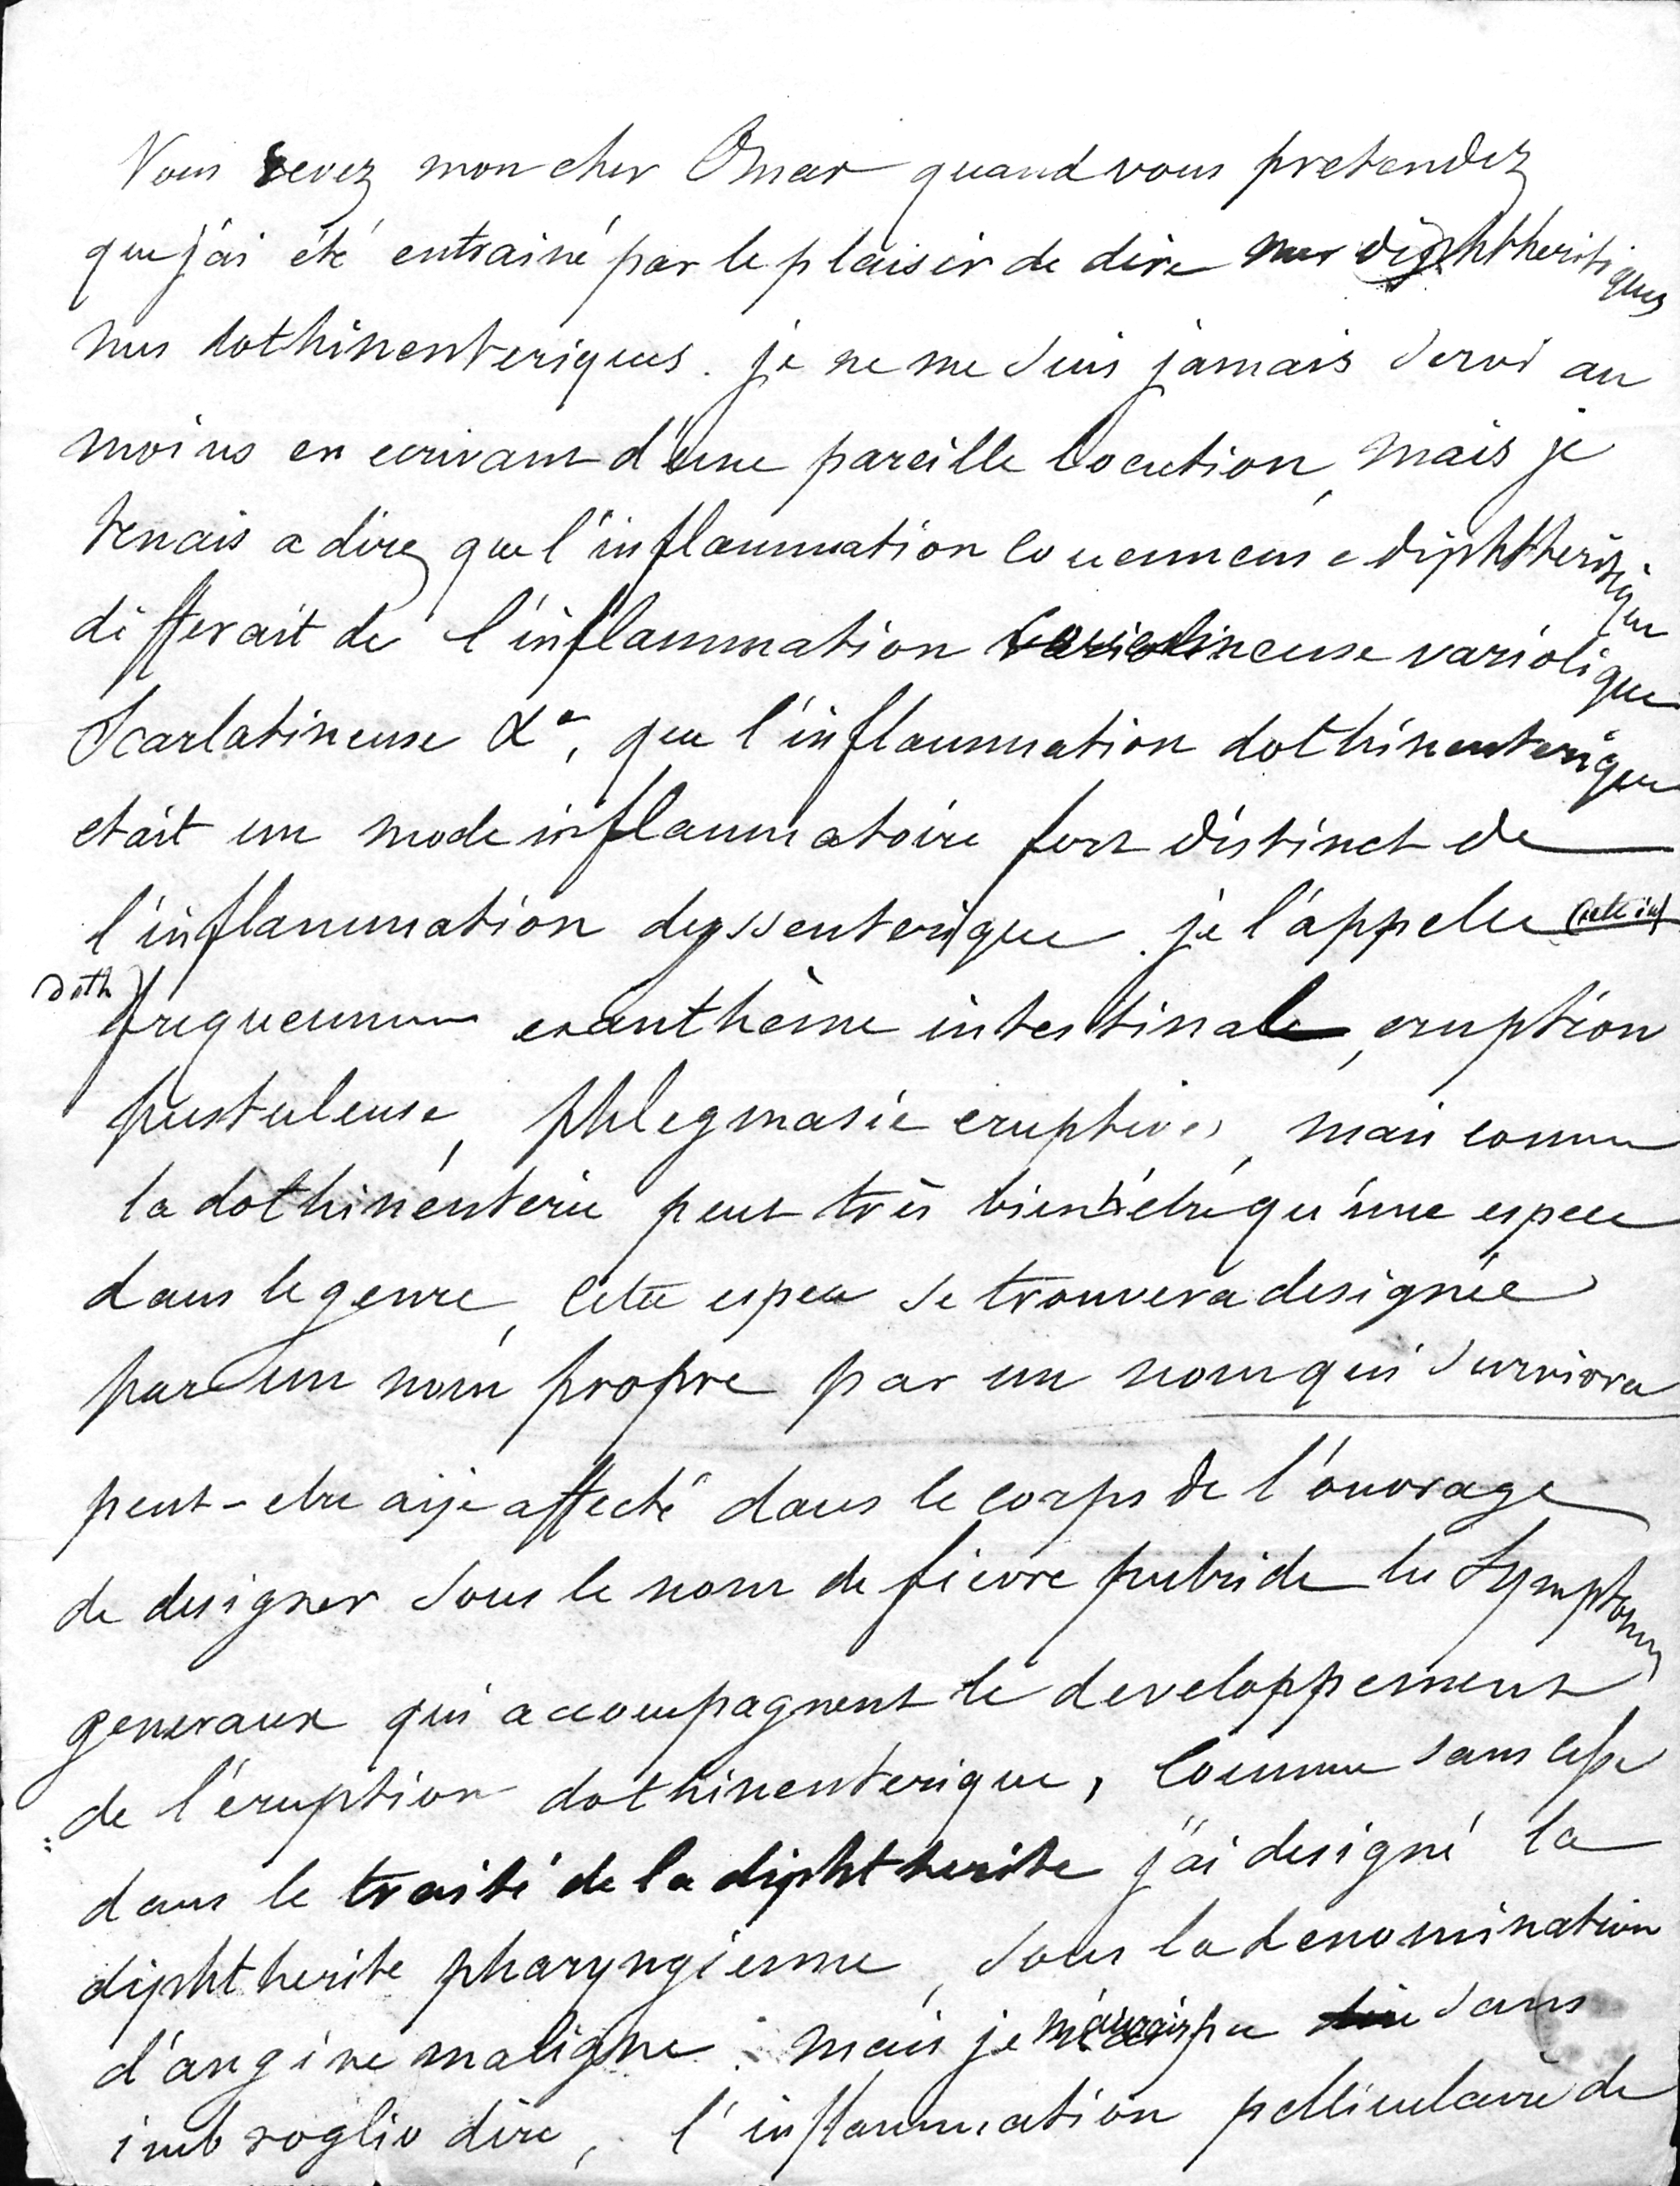 Vous revez mon cher Omar quand vous pretendez
que j'ai été entrainé par le plaisir de dire mes diphtheritiques
mes dothinenteriques. je ne me suis jamais servi au
moins en ecrivant d'une pareille locution, mais je
tenais a dire que l'inflammation couenneuse diphtheritique
differait de l'inflammation varioleuse variolique
Scarlatineuse &a, que l'inflammation dothinenterique
etait un mode inflammatoire fort distinct de
l'inflammation dyssenterique. je l'appelle (cette inf
doth) frequemment exanthème intestinale, eruption
pustuleuse, phlegmasie eruptive, mais comme
la dothinenterie peut très bien n'etre qu'une espece
dans le genre, cette espece se trouvera designée
par un nom propre par un nom qui survivra
peut-etre ai je affecté dans le corps de l'ouvrage
de designer sous le nom de fievre putride les symptomes
generaux qui accompagnent le developpement
de l'éruption dothinenterique, comme sans cesse
dans le traité de la diphtherite j'ai designé la
diphtherite pharyngienne, sous la denomination
d'angine maligne. mais je n'aurais pu sans
imbroglio dire, l'inflammation pelliculaire de